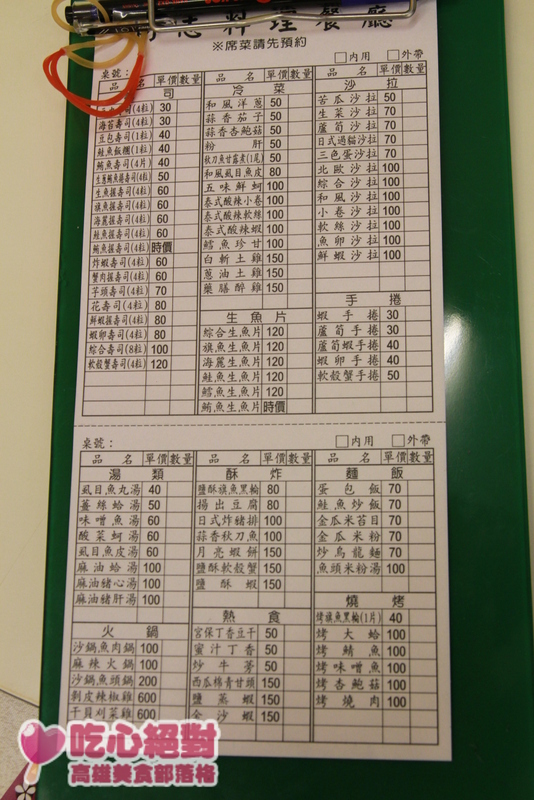 料理餐廳
※席菜請先預約
□內用 □外帶
桌號：
品名 單價 數量
司
壽司(4粒) 30
海苔壽司(4粒) 30
豆包壽司(1粒) 40
鮭魚飯糰(1粒) 40
鮪魚壽司(4片) 40
生蔥鮪魚捲壽司(4粒) 50
生魚握壽司(4粒) 60
旗魚握壽司(4粒) 60
海麗握壽司(4粒) 60
鮭魚握壽司(4粒) 60
鮪魚握壽司(4粒) 時價
炸蝦壽司(4粒) 60
蟹肉握壽司(4粒) 60
芋頭壽司(4粒) 70
花壽司(4粒) 80
鮮蝦握壽司(4粒) 80
蝦卵壽司(4粒) 80
綜合壽司(8粒) 100
軟殼蟹壽司(4粒) 120
品名 單價 數量
冷菜
和風洋蔥 50
蒜香茄子 50
蒜香杏鮑菇 50
粉肝 50
秋刀魚甘露煮(1尾) 50
和風虱目魚皮 80
五味鮮蚵 100
泰式酸辣小卷 100
泰式酸辣軟絲 100
泰式酸辣蝦 100
鱈魚珍甘 100
白斬土雞 150
蔥油土雞 150
藥膳醉雞 150
生魚片
綜合生魚片 120
旗魚生魚片 120
海麗生魚片 120
鮭魚生魚片 120
鱈魚生魚片 120
鮪魚生魚片 時價
品名 單價 數量
沙拉
苦瓜沙拉 50
生菜沙拉 70
蘆筍沙拉 70
日式過貓沙拉 70
三色蛋沙拉 70
北歐沙拉 100
綜合沙拉 100
和風沙拉 100
小卷沙拉 100
軟絲沙拉 100
魚卵沙拉 100
鮮蝦沙拉 100
手捲
蝦手捲 30
蘆筍手捲 30
蘆筍蝦手捲 40
蝦卵手捲 40
軟殼蟹手捲 50
桌號：
□內用 □外帶
品名 單價 數量
湯類
虱目魚丸湯 40
薑絲蛤湯 50
味噌魚湯 60
酸菜蚵湯 60
虱目魚皮湯 60
麻油蛤湯 100
麻油豬心湯 100
麻油豬肝湯 100
火鍋
沙鍋魚肉鍋 100
麻辣火鍋 100
沙鍋魚頭鍋 200
剝皮辣椒雞 600
干貝刈菜雞 600
品名 單價 數量
酥炸
鹽酥旗魚黑輪 80
揚出豆腐 80
日式炸豬排 100
蒜香秋刀魚 100
月亮蝦餅 150
鹽酥軟殼蟹 150
鹽酥蝦 150
熱食
宮保丁香豆干 50
蜜汁丁香 50
炒牛蒡 50
西瓜棉青甘頭 150
鹽蒸蝦 150
金沙蝦 150
品名 單價 數量
麵飯
蛋包飯 70
鮭魚炒飯 70
金瓜米苔目 70
金瓜米粉 70
炒烏龍麵 70
魚頭米粉湯 100
燒烤
烤旗魚黑輪(1片) 40
烤大蛤 100
烤鯖魚 100
烤味噌魚 100
烤杏鮑菇 100
烤燒肉 100
吃心絕對
高雄美食部落格